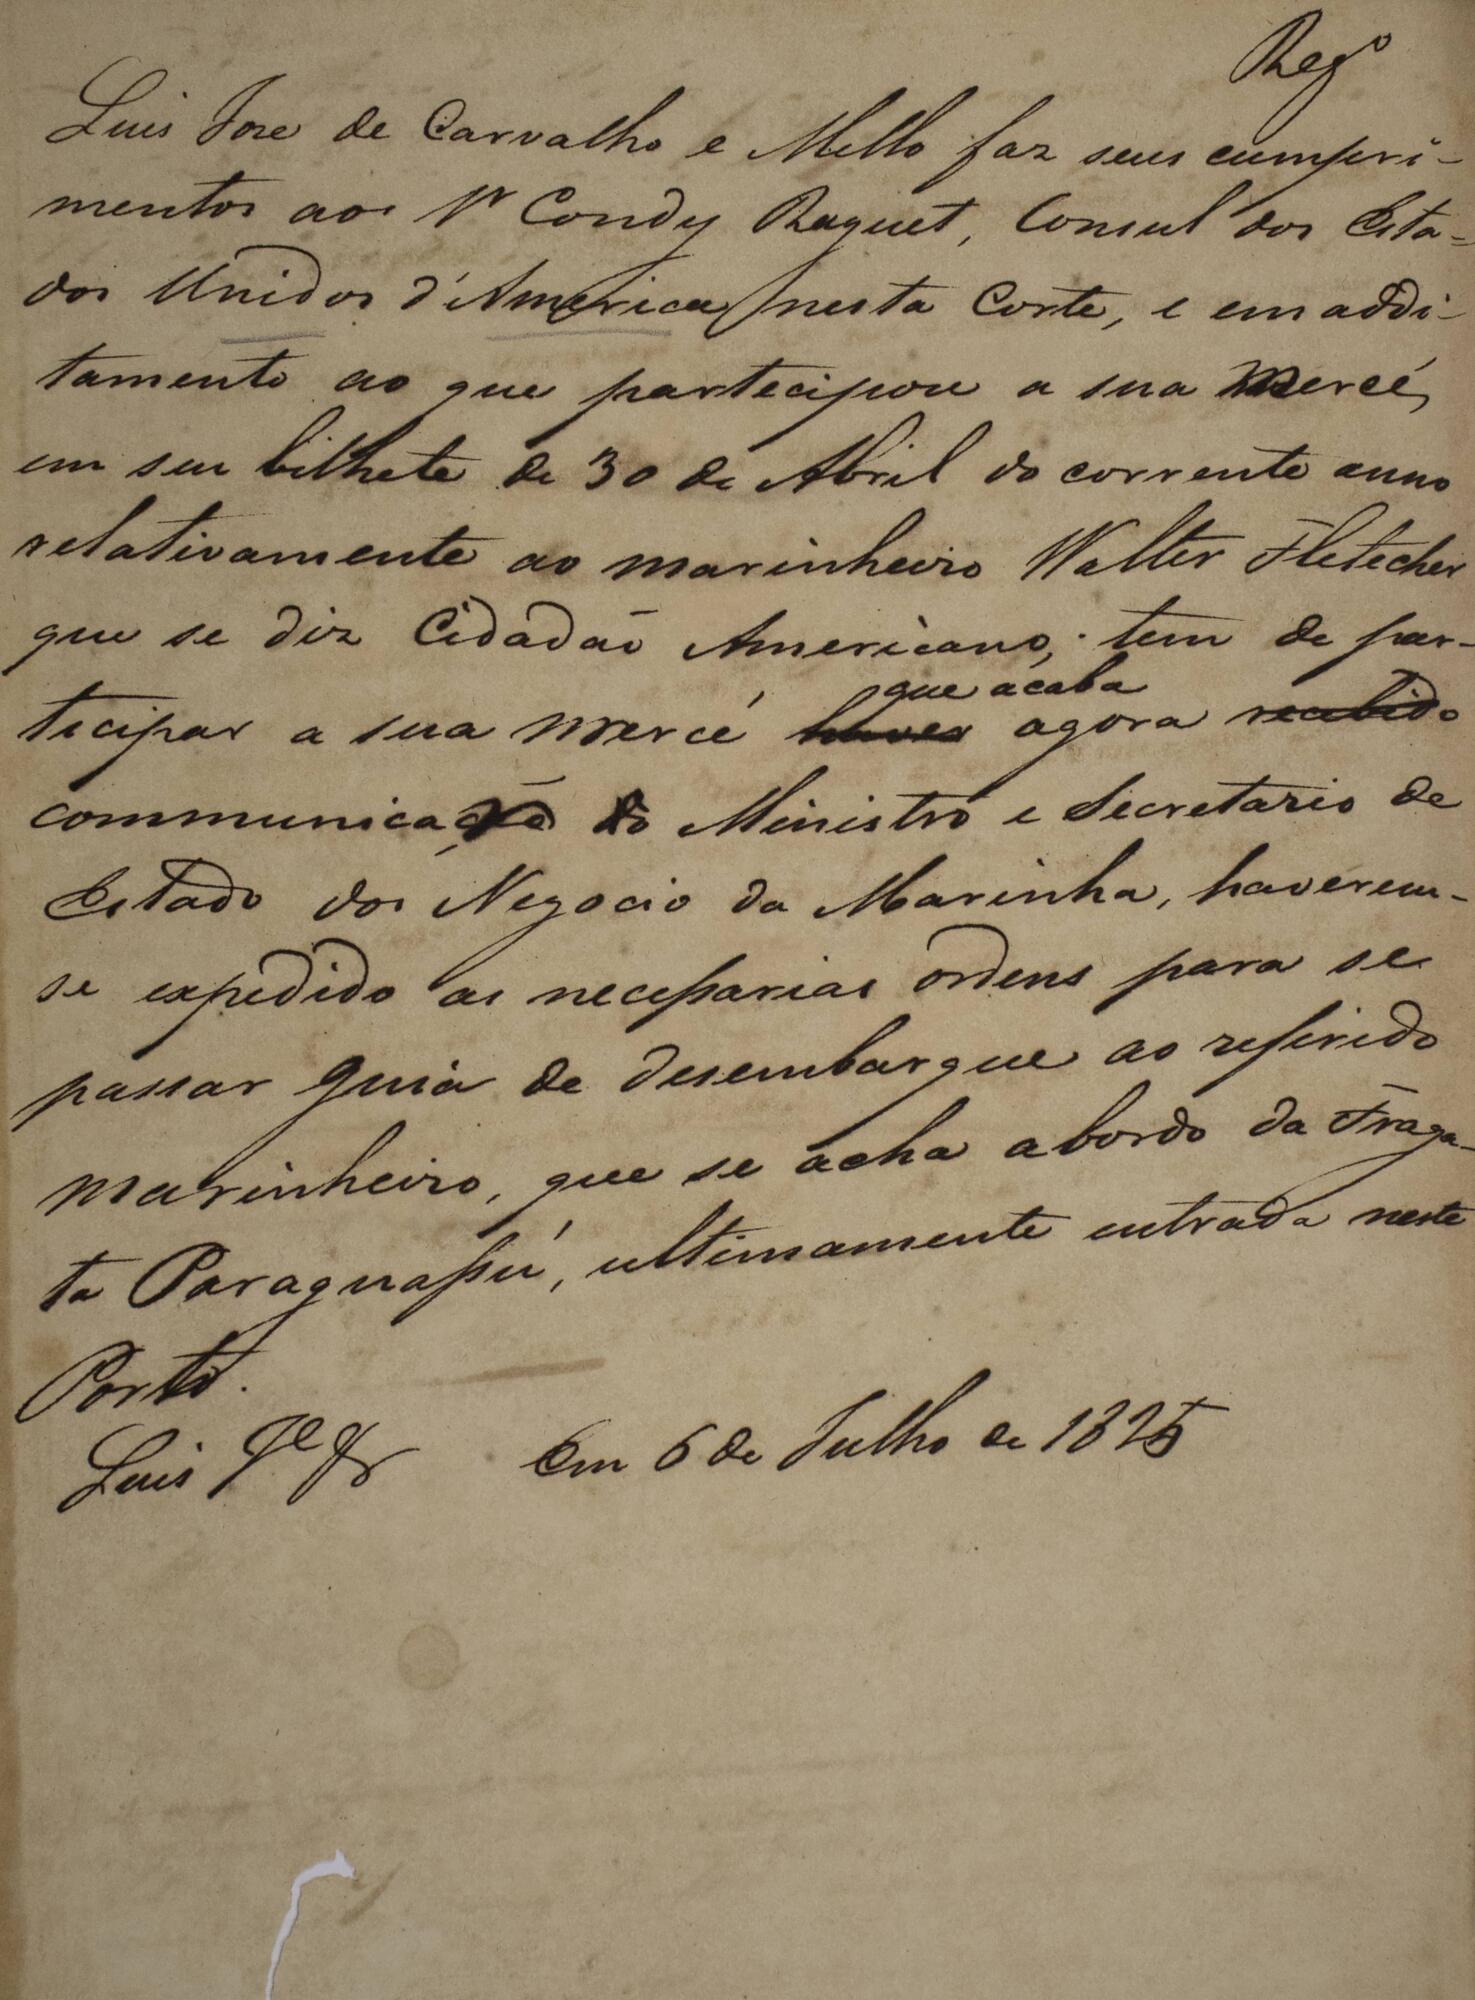 Reg.º
Luis Jose de Carvalho e Mello faz seus cumpri-
mentos aos Sr Condy Raguet, Consul dos Esta-
dos Unidos d'America nesta Corte, e em addi-
tamento ao que partecipou a sua Mercê,
em seu bilhete de 30 de Abril do corrente anno
relativamente ao marinheiro Walter Fletecher
que se diz Cidadão Americano, tem de par-
que acaba
ticipar a sua Mercê haver agora recebido
communicação do Ministro e Secretario de
Estado dos Negocio da Marinha, haverem-
se expedido as necessarias ordens para se
passar guia de desembarque ao referido
marinheiro, que se acha abordo da Fraga-
ta Paraguassú, ultimamente entrada neste
Porto.
Luis Je Em 6 de Julho de 1825